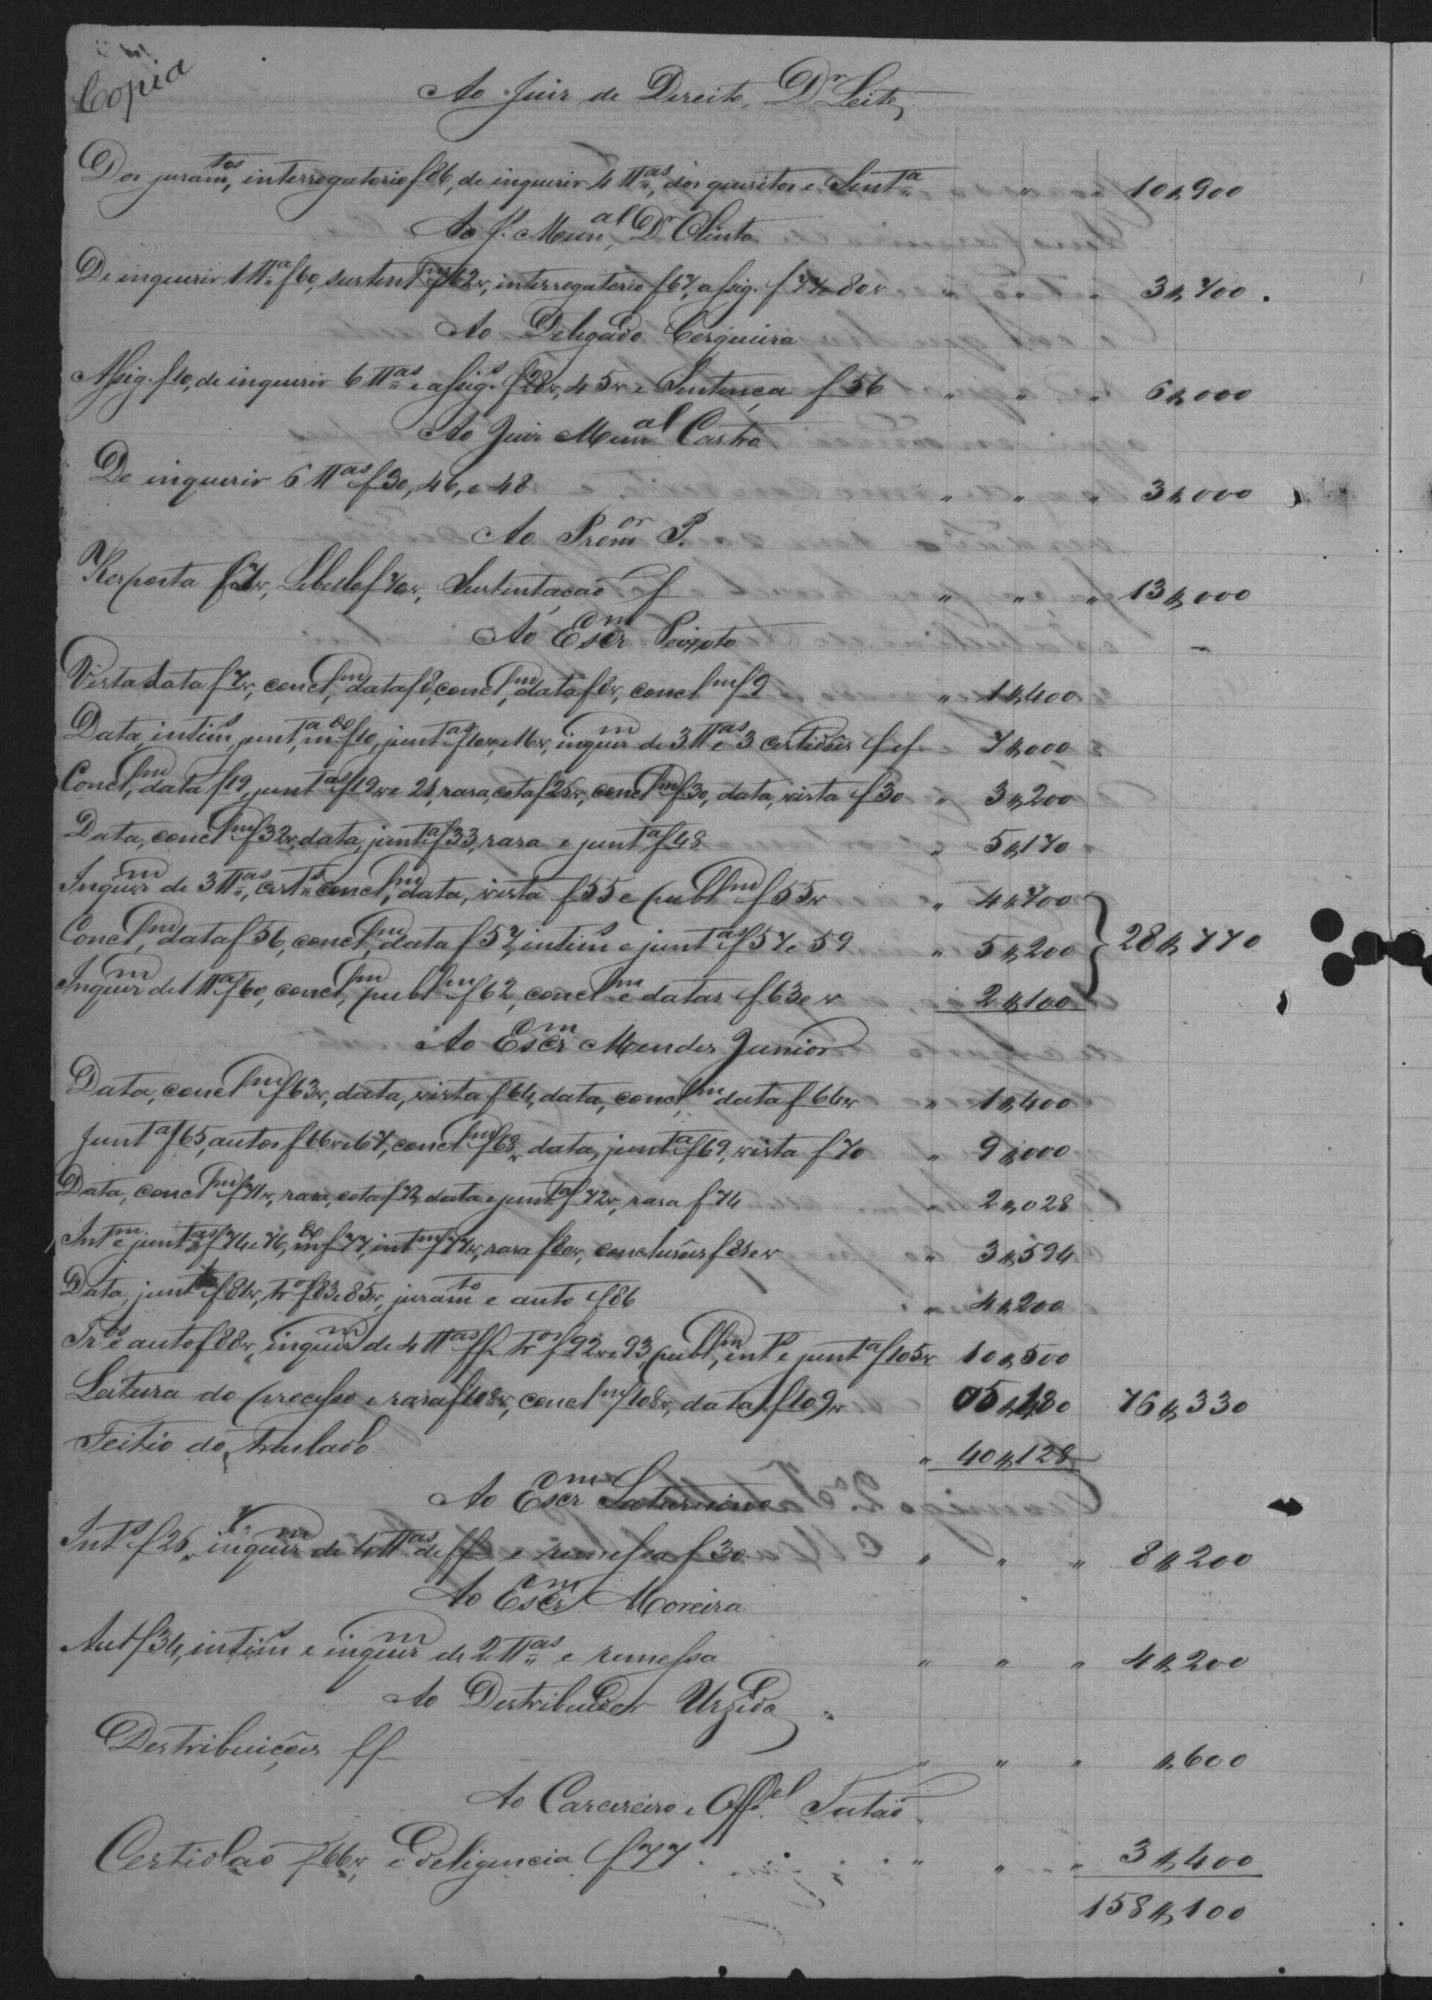 Copia
Ao Juiz de Direito, Dr Leite
Dos juramtos, interrogatorio f 86, de inquirir 4 ttas, dos quesitos e Senta " " 10$900
Ao J. Munal, Dr Olinto
De inquirir 1 tta f 60, sustent f 62v, interrogatorio f 67, assig. f 77 e 80v " " " 3$700.
Ao Delegado Cerqueira
Assig. f 10, de inquirir 6 ttas e assigs f 28v, 45v e Sentença f 56 " " " 6$000
Ao Juiz Munal Castro
De inquirir 6 ttas f 30, 46, e 48 " " " 3$000
Ao Promor P.
Resposta f 7v, Libello f 70v, Sustentação f " " " 13$000
Ao Escrm Peixoto
Vista data f 7v, conclm, data f 8, conclm, data f 8v, conclm f 9 " 1$400
Data, intims, junta, f 10, juntas f 10v e 16v, inquirm de 3 ttas e 3 certidões f f " 7$000
Conclm, data f 19, juntas f 19v e 21, rasa, cota f 25v, conclm f 30, data, vista f 30 " 3$200
Data, conclm f 32v, data, junta f 33, rasa e junta f 48 " 5$170
Inquirm de 3 ttas, certs conclm, data, vista f 55 e publm f 55v " 4$700
Conclm, data f 56, conclm, data f 57, intims e juntas f 57 e 59 " 5$200 } 28$770
Inquirm de 1 tta f 60, conclm, publm f 62, conclm e datas f 63 e v 2$100
Ao Escrm Mendes Junior
Data, conclm f 63v, data, vista f 64, data, conclm data f 64v " 1$400
Junta f 65, autos f 66v e 67, conclm f 68v data, junta f 69, vista f 70 " 9$000
Data, conclm f 71v, rasa, cota f 72, data e junta f 72v, rasa f 74 " 2$028
Intm e juntas f 74 e 76, f 77, intm f 77v, rasa f 80v, conclusões f 81 e v " 3$594
Data, junta f 81v, tr f 83 e 85v, juramto e auto f 86 " 4$200
Tros e auto f 88v, inquirm de 4 ttas ff tros f 92v e 93, publm, int e junta f 105v 10$500
Leitura do processo e rasa f 108v, conclm f 108v, data f 109v 05$480 76$330
Feitio do Traslado " 40$128
Ao Escrm Saturnino
Ints f 26v inquirm de 4 ttas de ff e remessa f 30 " " " 8$200
Ao Escrm Moreira
Aut f 34, intims e inquirm de 2 ttas e remessa " " " 4$200
Ao Destribuidor Urzeda
Destribuições ff " " " $600
Ao Carcereiro e Offel Tatão
Certidão f 66v e deligencia f 77. " " " 3$400
158$100